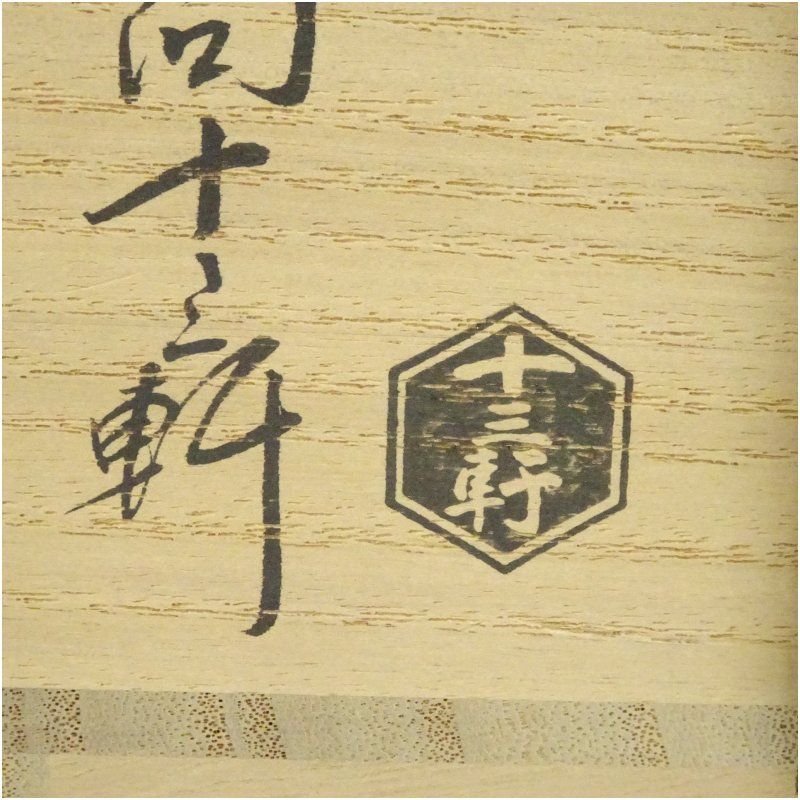 十三軒
十三軒